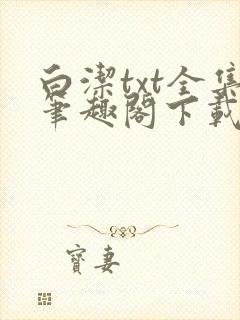 白潔txt全集
筆趣閣下載
寶妻